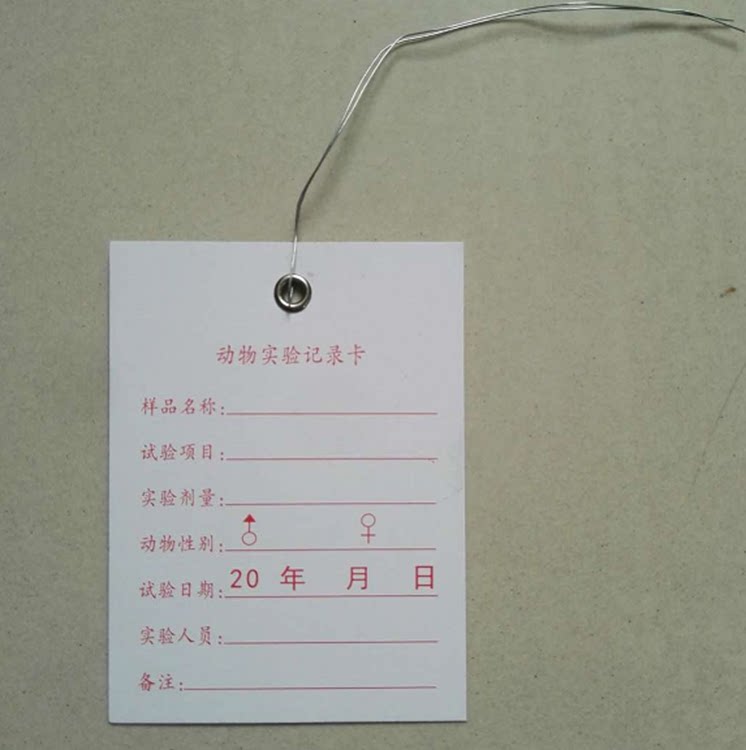 动物实验记录卡
样品名称:
试验项目:
实验剂量:
动物性别: ♂ ♀
试验日期: 20 年 月 日
实验人员:
备注: